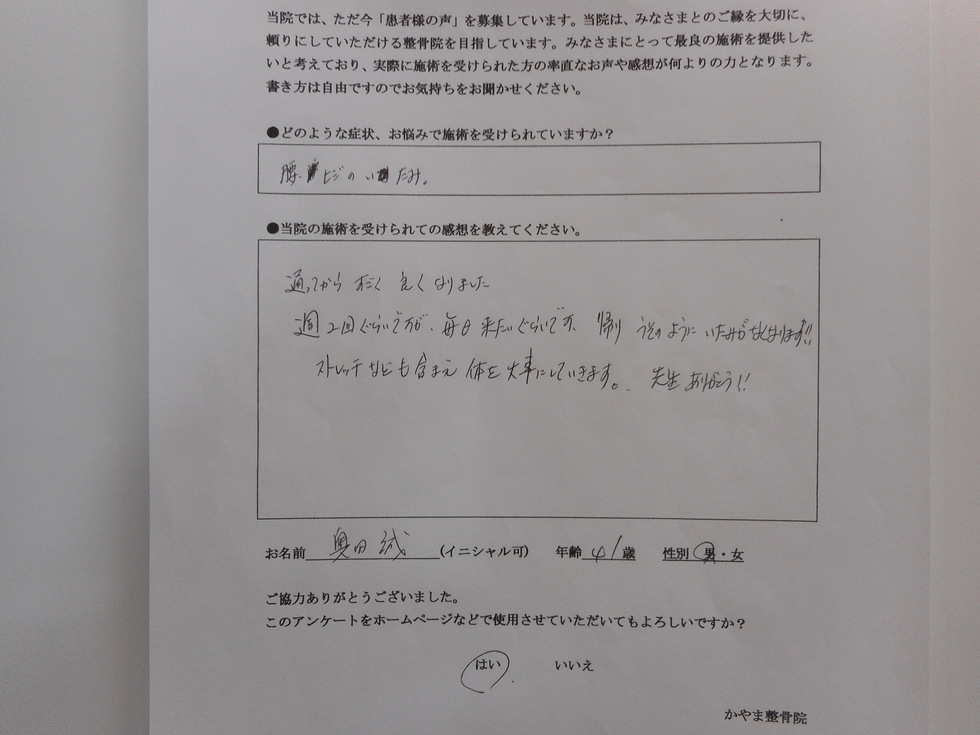 当院では、ただ今「患者様の声」を募集しています。当院は、みなさまとのご縁を大切に、
頼りにしていただける整骨院を目指しています。みなさまにとって最良の施術を提供した
いと考えており、実際に施術を受けられた方の率直なお声や感想が何よりの力となります。
書き方は自由ですのでお気持ちをお聞かせください。
●どのような症状、お悩みで施術を受けられていますか？
腰、ヒジのいたみ。
●当院の施術を受けられての感想を教えてください。
通ってから すごく 良くなりました
週2回ぐらいですが、毎日来たいぐらいです、帰り うそのように いたみがなくなります!!
ストレッチなども含まえ 体を大事にしていきます。、先生ありがとう!!
お名前 奥田 誠 (イニシャル可) 年齢 41 歳 性別 男・女
ご協力ありがとうございました。
このアンケートをホームページなどで使用させていただいてもよろしいですか？
はい いいえ
かやま整骨院